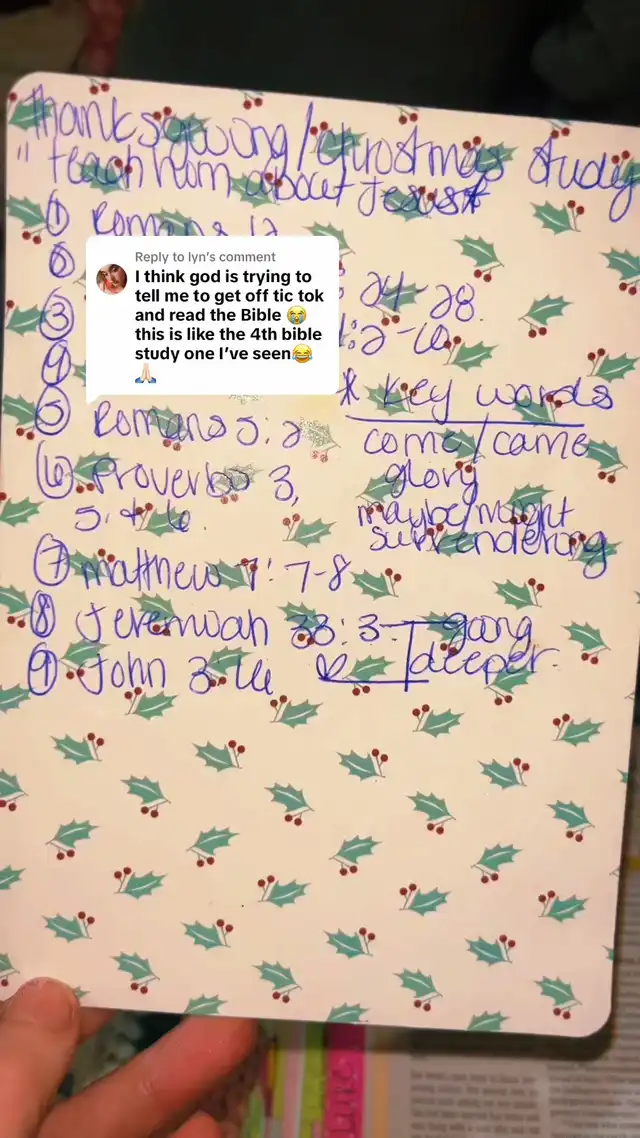 Thanksgiving/christmas study
" teach hom about Jesus*
① Romans 12
②
: 24-28
③
:2-10
④
* key words
⑤ Romans 5:2
come/came
⑥ Proverbs 3,
glory
5 & 6.
maybe/might
surrendering
⑦ matthew 7:7-8
⑧ Jeremiah 33:3
going
deeper.
⑨ John 3:16
Reply to lyn's comment
I think god is trying to
tell me to get off tic tok
and read the Bible 😭
this is like the 4th bible
study one I've seen😂
🙏🏻